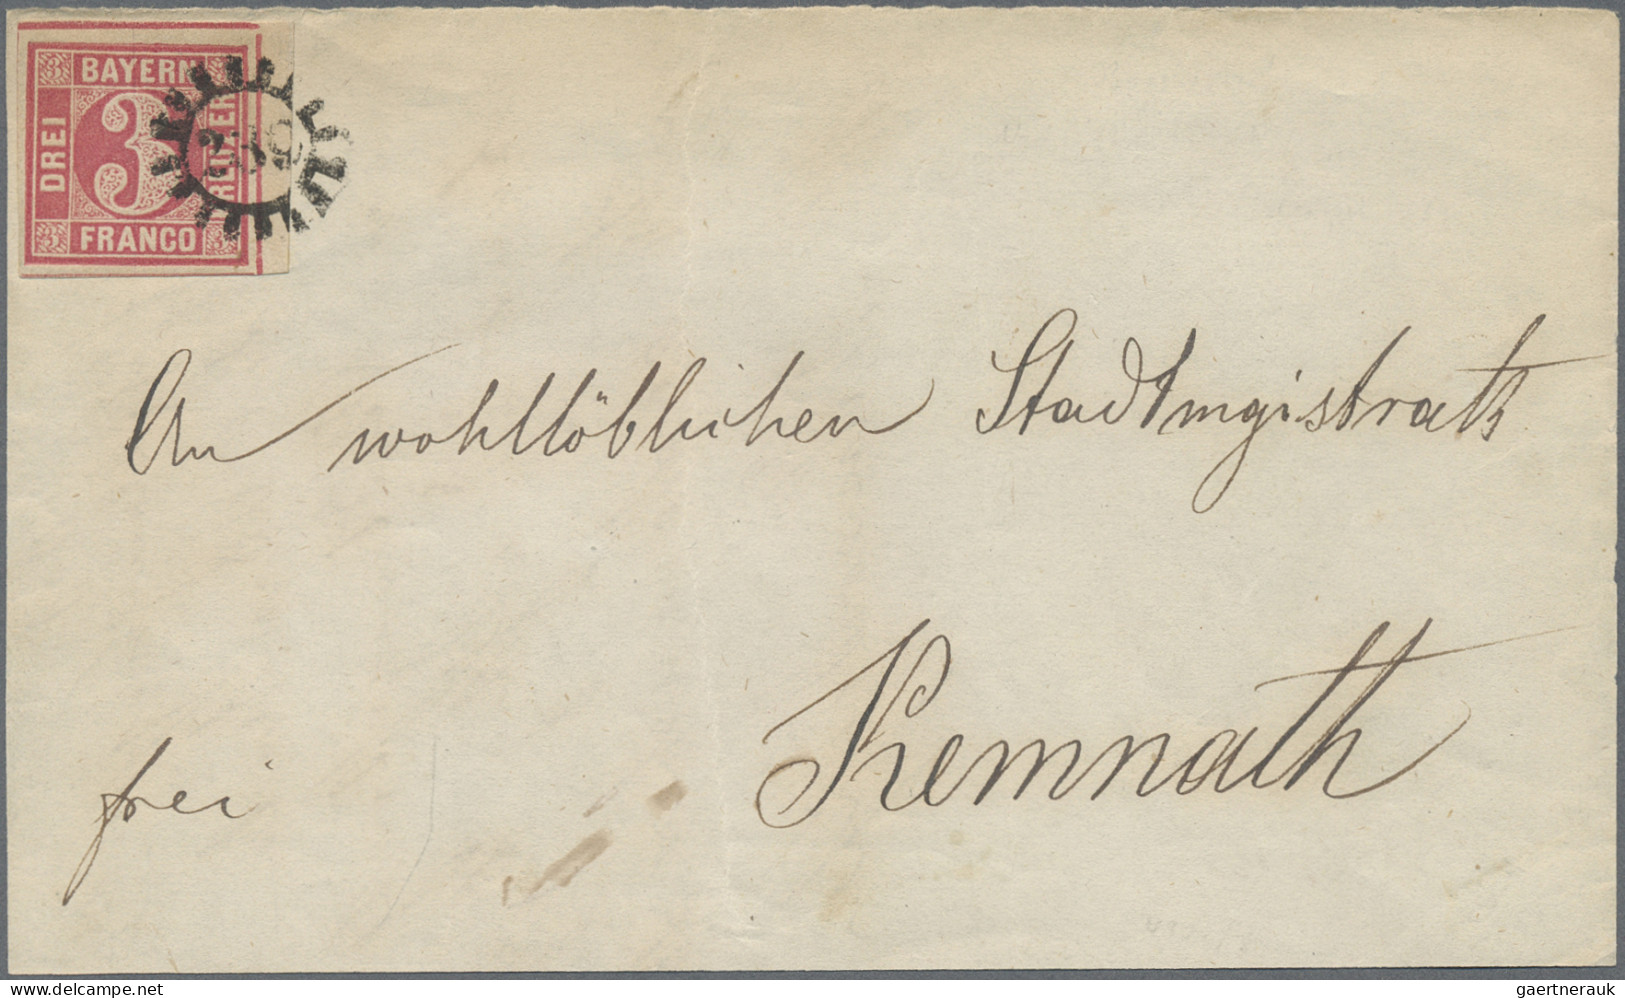 BAYERN
DREI
3
3
3
3
FRANCO
An wohllöblichen Stadtmgistrath
Kemnath
frei
delcampe.net
gaertnerauk